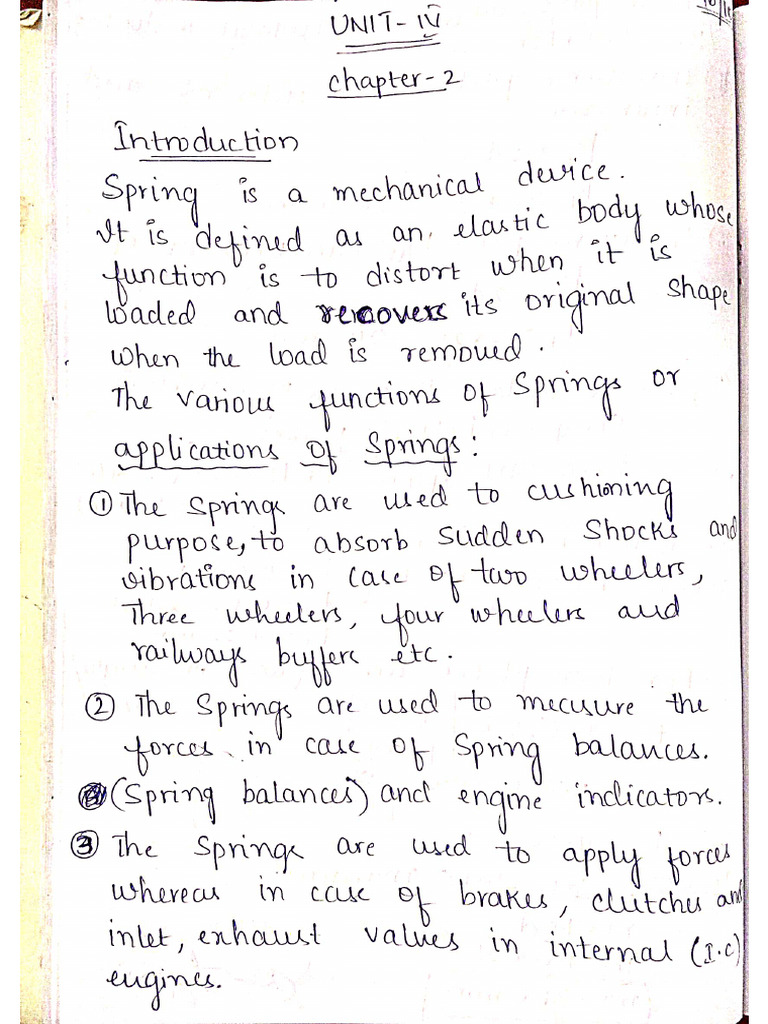 UNIT-IV
Chapter-2
Introduction
Spring is a mechanical device.
It is defined as an elastic body whose
function is to distort when it is
loaded and recovers its original shape
when the load is removed.
The various functions of Springs or
applications of Springs:
① The Springs are used to cushioning
purpose, to absorb sudden shocks and
vibrations in case of two wheelers,
Three wheelers, four wheelers and
railways buffers etc.
② The Springs are used to mecusure the
forces in case of Spring balances.
(Spring balances) and engine indicators.
③ The Springs are used to apply forces
whereas in case of brakes, clutches and
inlet, exhaust values in internal (I.c)
engines.